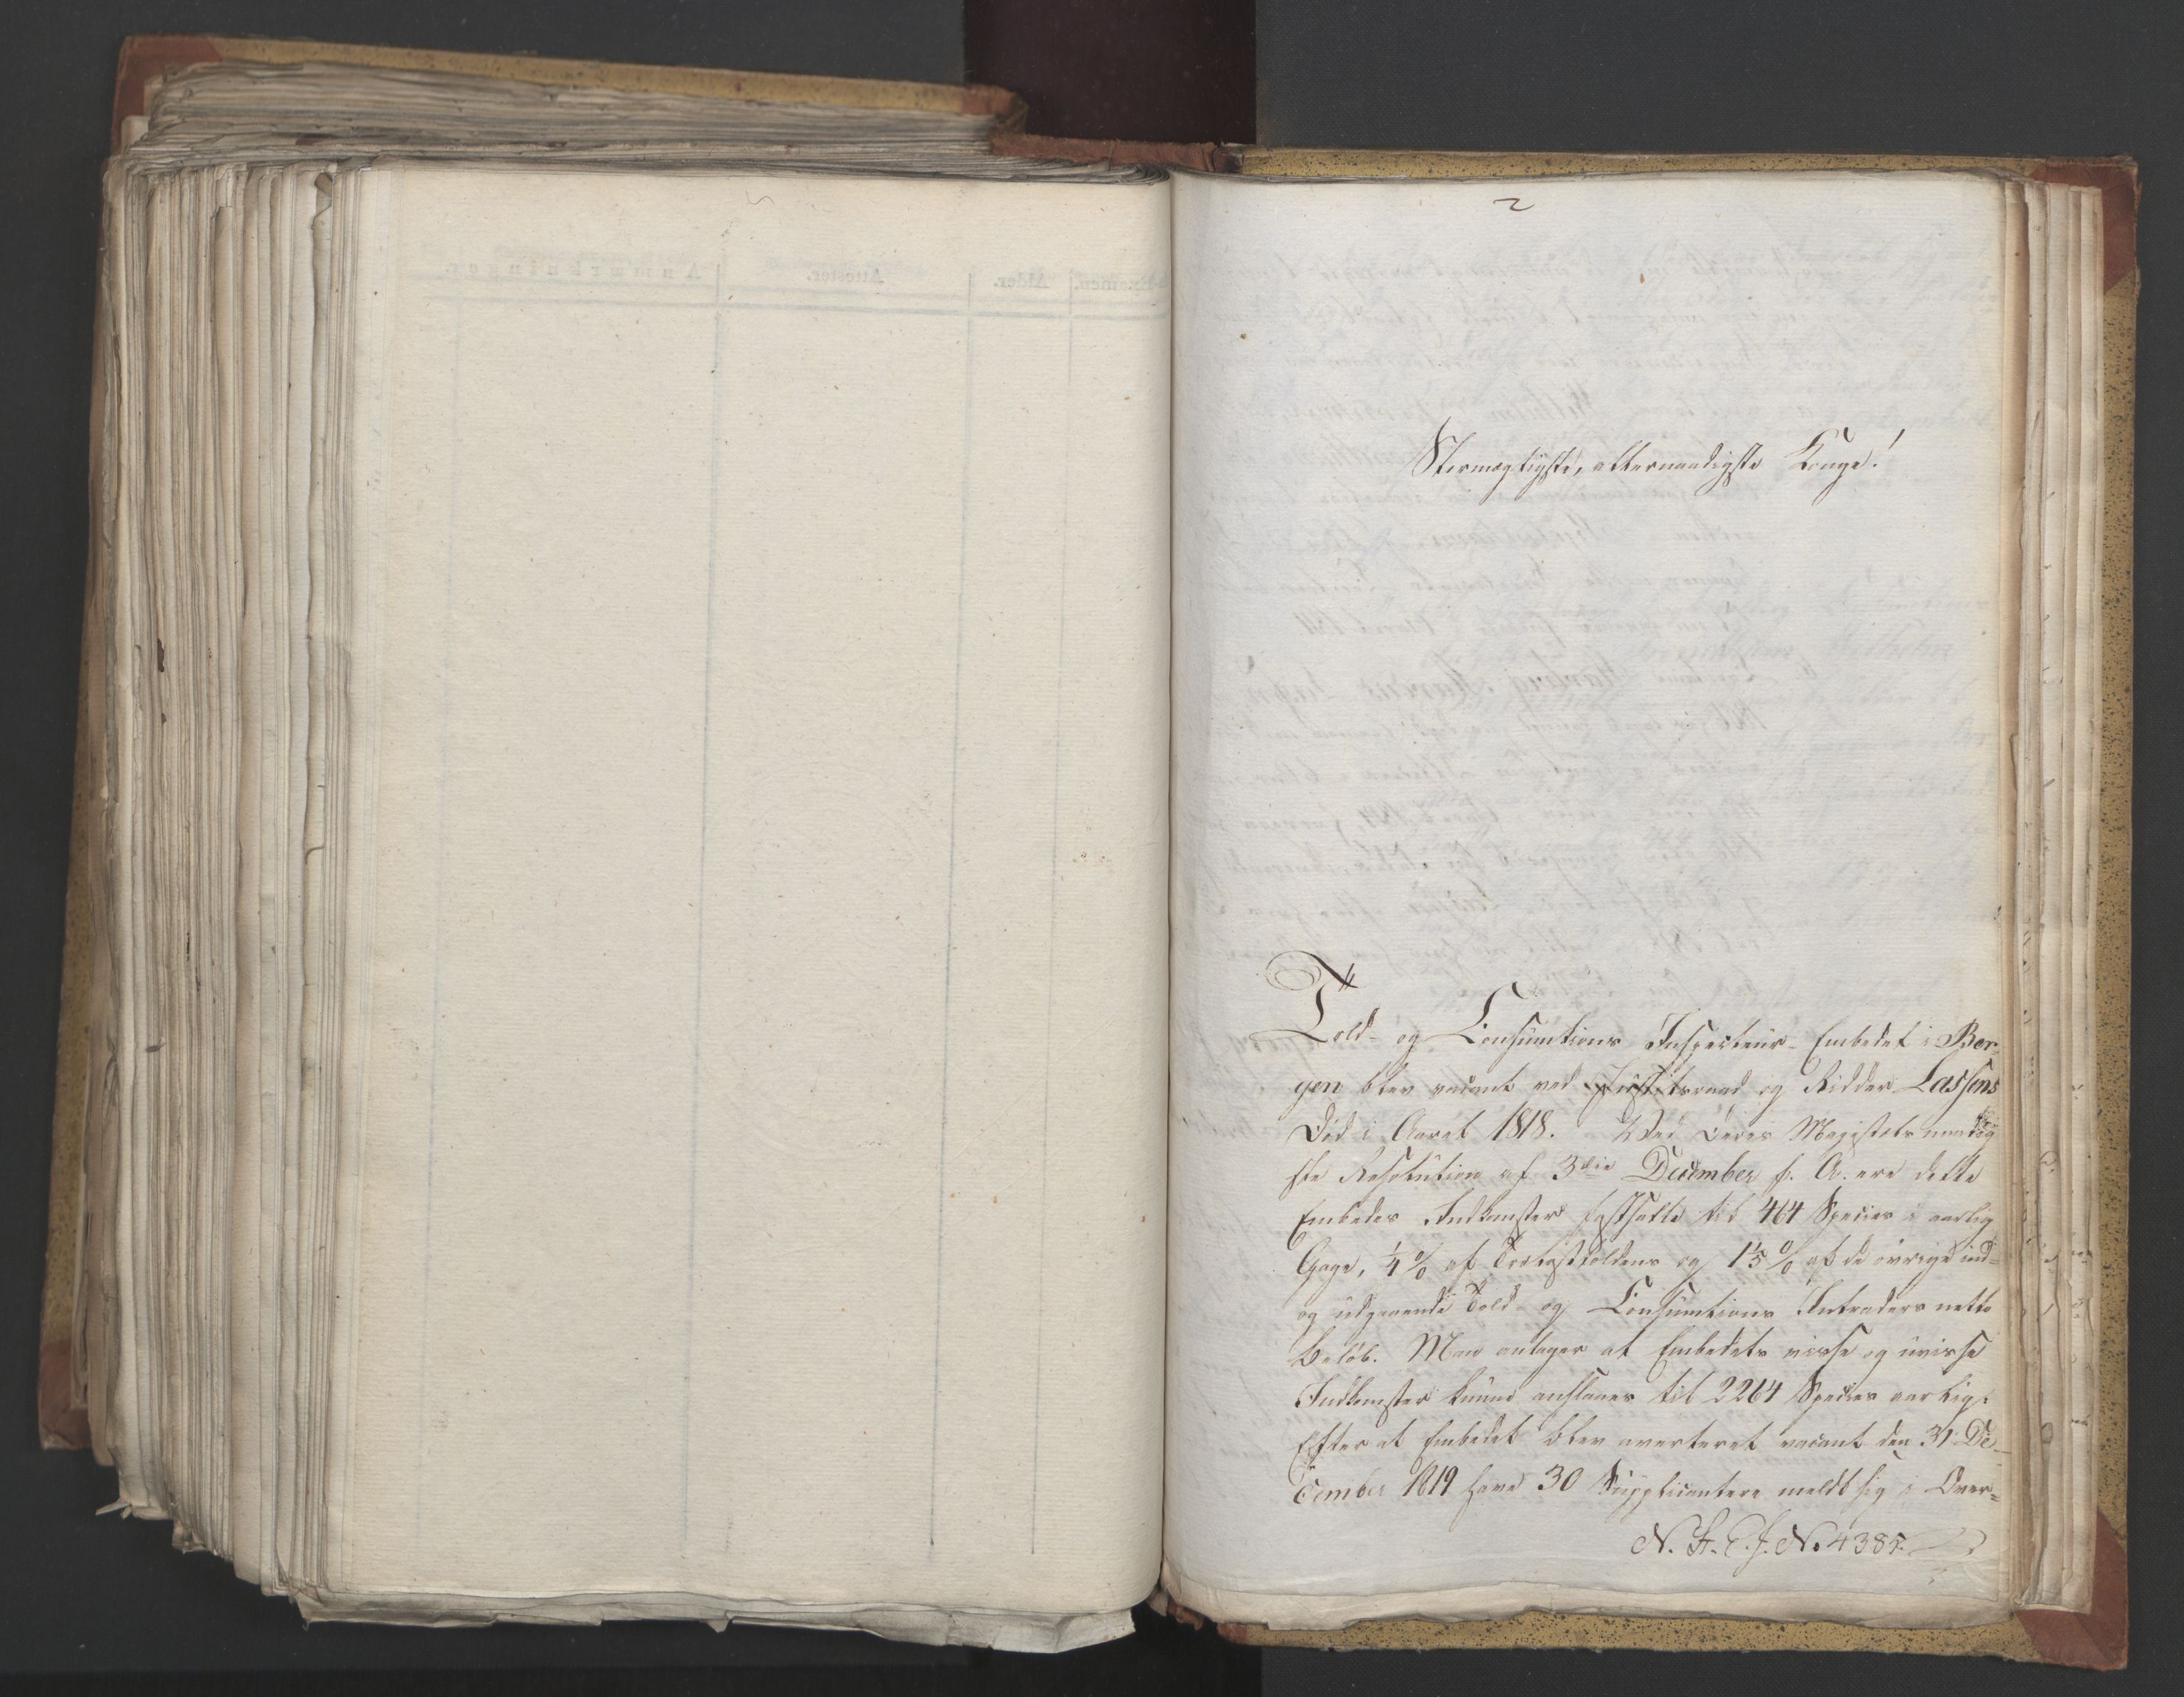 2
Stormægtigste, allernaadigste Konge!
Told- og Consumtions Inspecteur-Embedet i Ber-
gen blev vacant ved Justitsraad og Ridder Lassens
Död i Aaret 1818. Ved Deres Majestæts naadig
ste Resolution af 3die December f. A. ere dette
Embedes Indkomster fastsatte til 464 Species i aarlig
Gage, 1/4 % af Trælasttolden og 1 1/5 % af de övrige ind-
og udgaaende Told- og Consumtions Intraders netto
Belöb. Man antager at Embedets visse og uvisse
Indkomster kunne anslaaes til 2264 Species aarlig.
Efter at Embedet blev averteret vacant den 31 De-
cember 1819 have 30 Supplicantere meldt sig i Over-
N. St. E. J. No 4385.